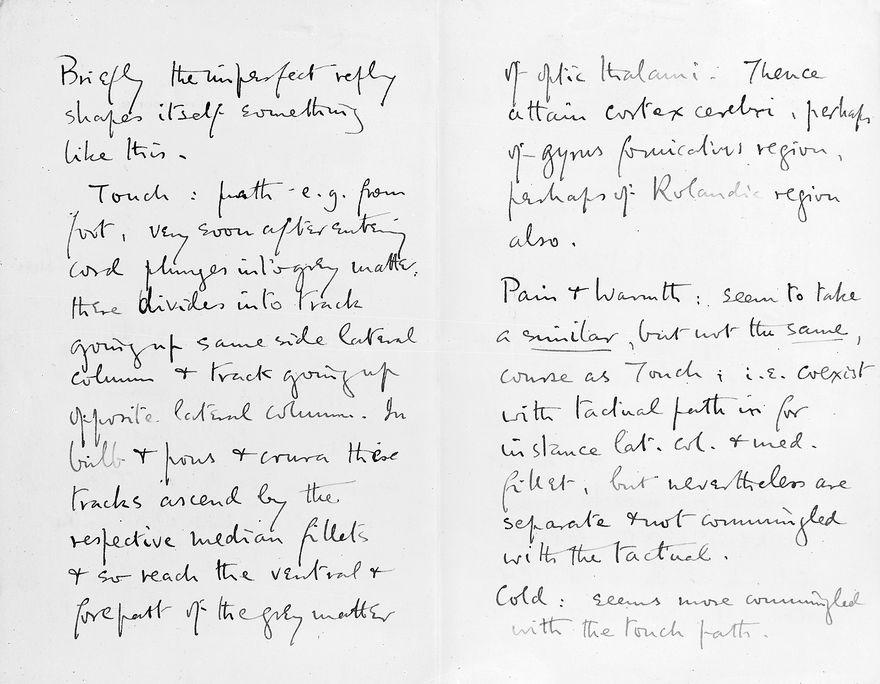 Briefly the imperfect reply
shapes itself something
like this.
Touch : path - e.g. from
foot, very soon after entering
cord plunges into grey matter;
there divides into track
going up same side lateral
column & track going up
opposite lateral column. In
bulb & pons & crura these
tracks ascend by the
respective median fillets
& so reach the ventral &
forepart of the grey matter
of optic thalami. Thence
attain cortex cerebri, perhaps
of gyrus fornicatus region,
perhaps of Rolandic region
also.
Pain & Warmth : seem to take
a similar, but not the same,
course as Touch ; i.e. coexist
with tactual path in for
instance lat. col. & med.
fillet, but nevertheless are
separate & not commingled
with the tactual.
Cold : seems more commingled
with the touch path.